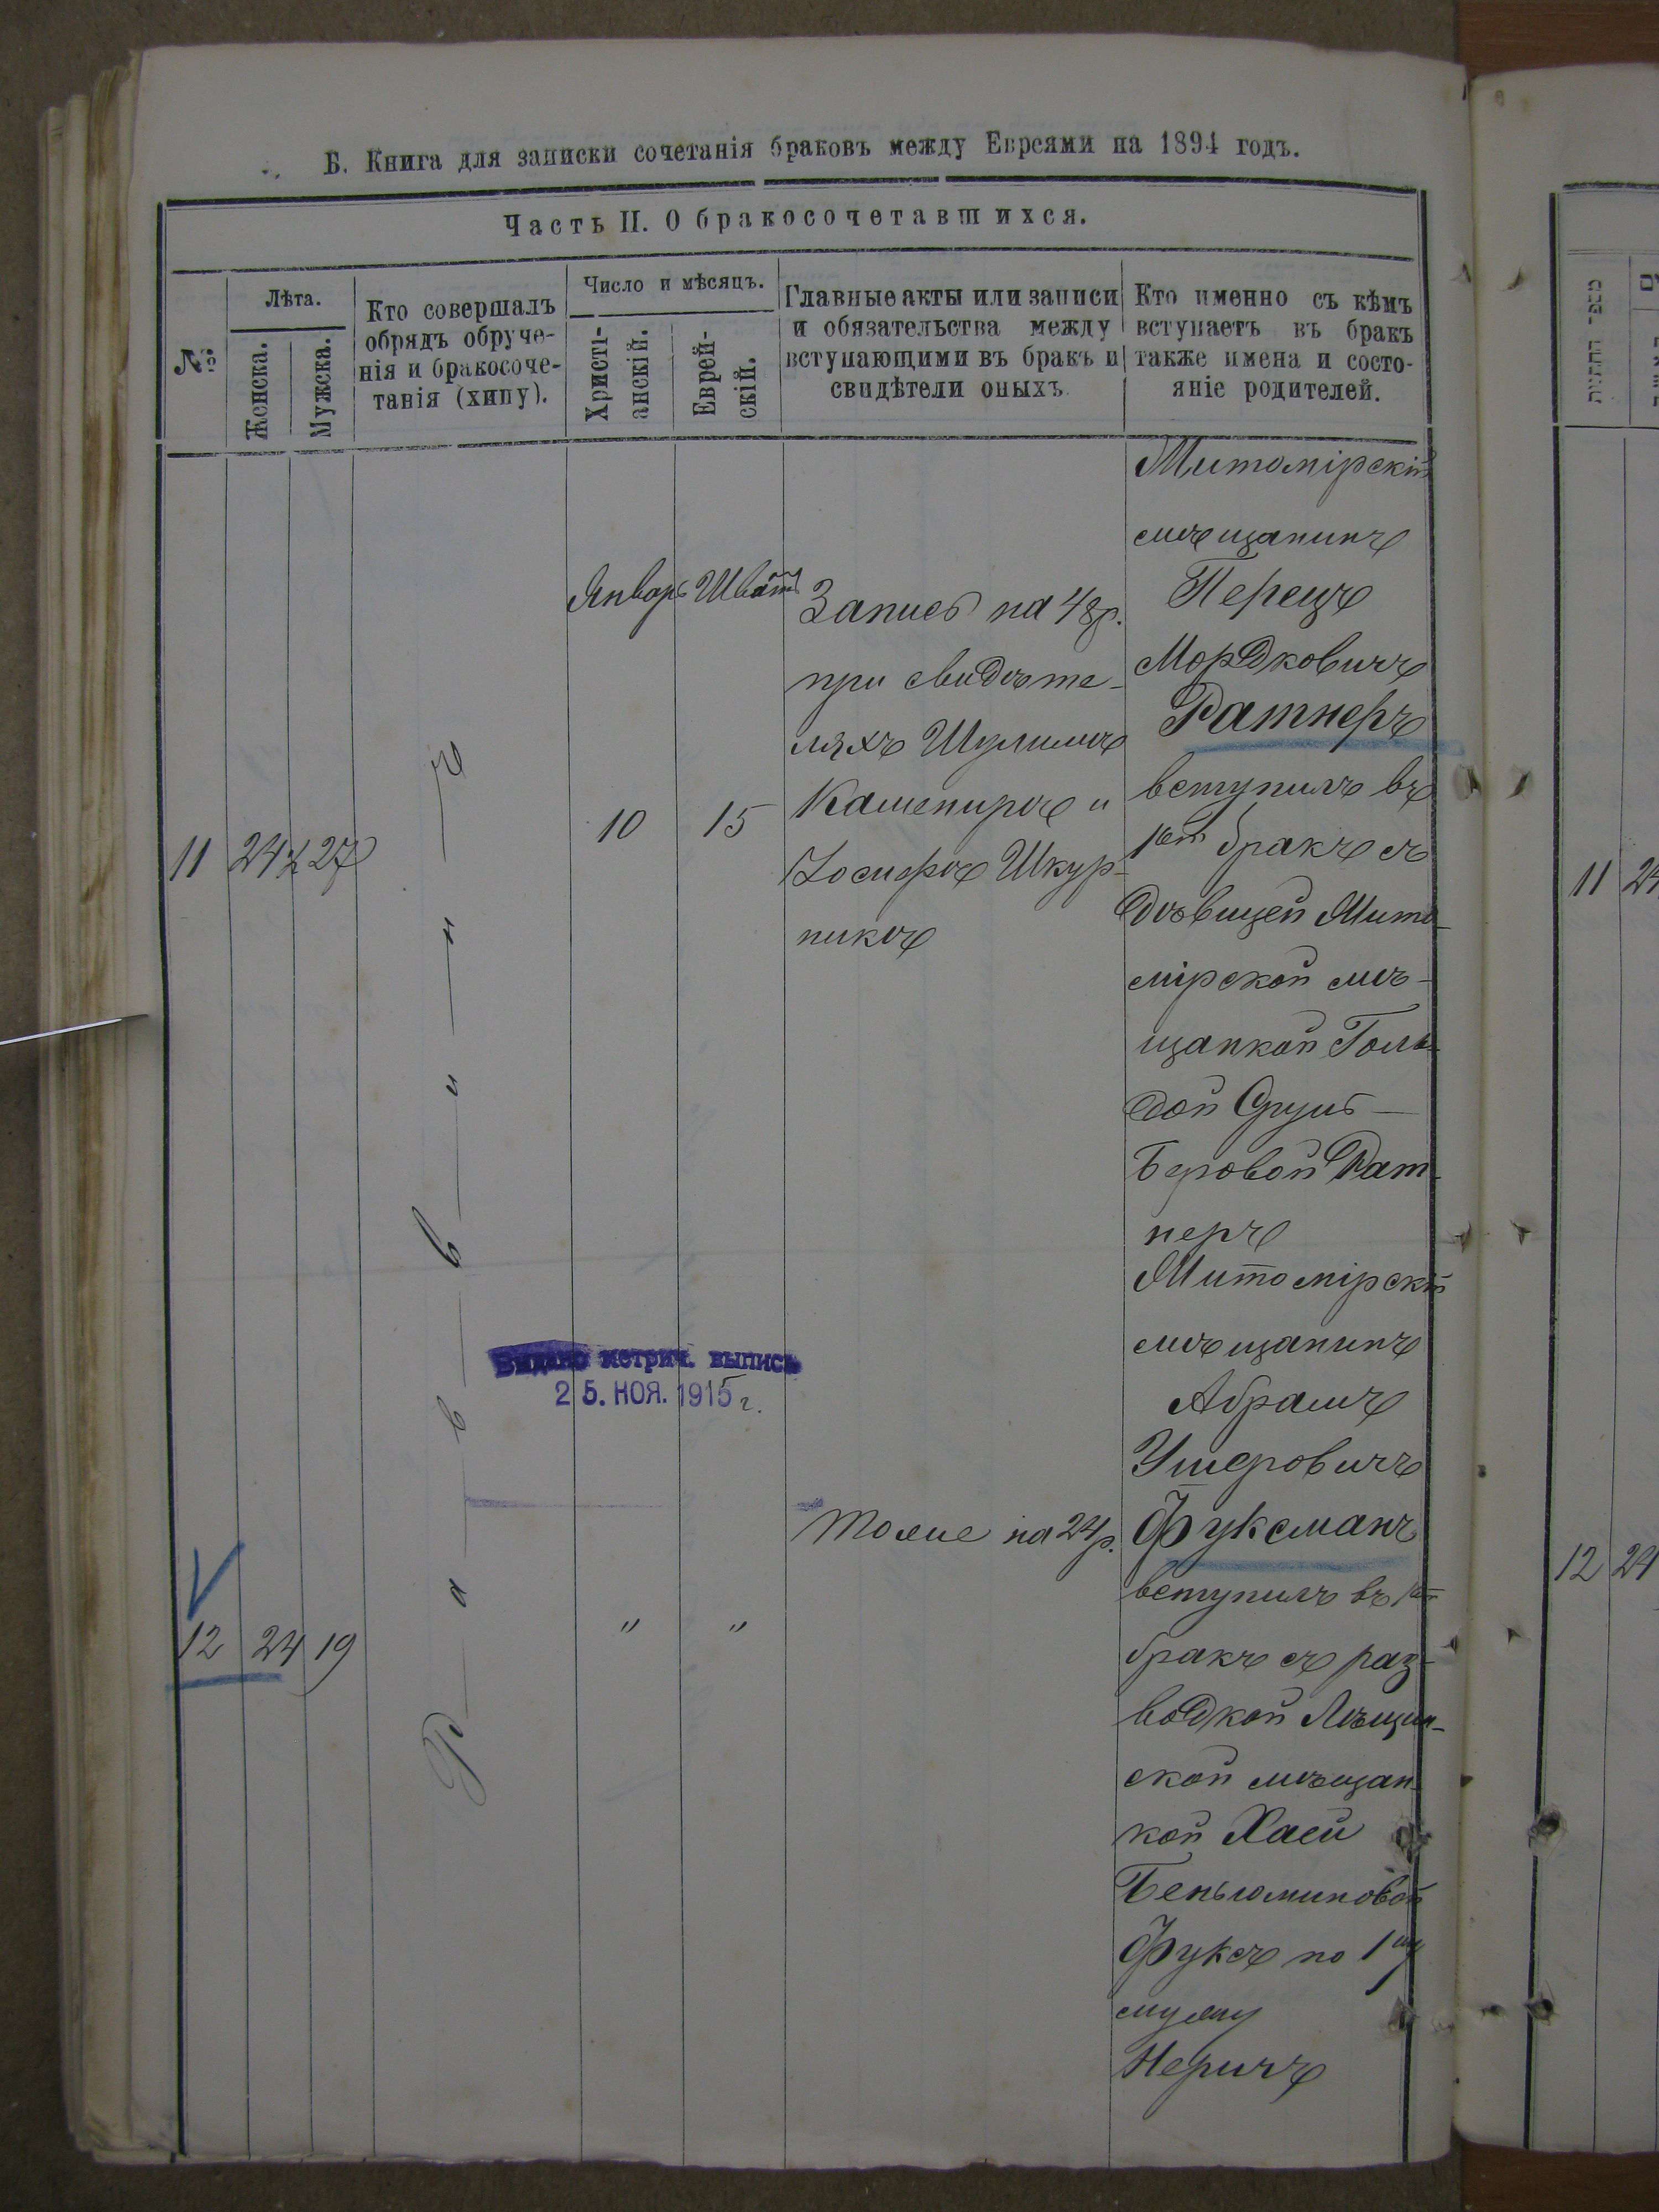 Б. Книга для записки сочетанія браковъ между Евреями на 1894 годъ.
Часть II. О бракосочетавшихся.
№
Лѣта.
Женска.
Мужска.
Кто совершалъ
обрядъ обруче-
нія и бракосоче-
танія (хипу).
Число и мѣсяцъ.
Христі-
анскій.
Еврей-
скій.
Главные акты или записи
и обязательства между
вступающими въ бракъ и
свидѣтели оныхъ
Кто именно съ кѣмъ
вступаетъ въ бракъ
также имена и состо-
яніе родителей.
11
24
27
Раввинъ
Январь
10
Шватъ
15
Запись на 48р.
при свидѣте-
ляхъ Шулимѣ
Кашепирѣ и
Іосифѣ Шкур-
никѣ
Житомірскій
мѣщанинъ
Перецъ
Мордковичъ
Ратнеръ
вступилъ въ
1ый бракъ съ
дѣвицей Жито-
мірской мѣ-
щанкой Голь-
дой Сруль-
Беровой Рат-
неръ
Выдано метрич. выпись
25. НОЯ. 1915 г.
12
24
19
"
"
Тоже на 24р.
Житомірскій
мѣщанинъ
Абрамъ
Ушеровичъ
Фуксманъ
вступилъ въ 1ый
бракъ съ раз-
водкой Лѣщин-
ской мѣщан-
кой Хаей
Беньюминовой
Фуксъ по 1му
мужу
11
24
12
24